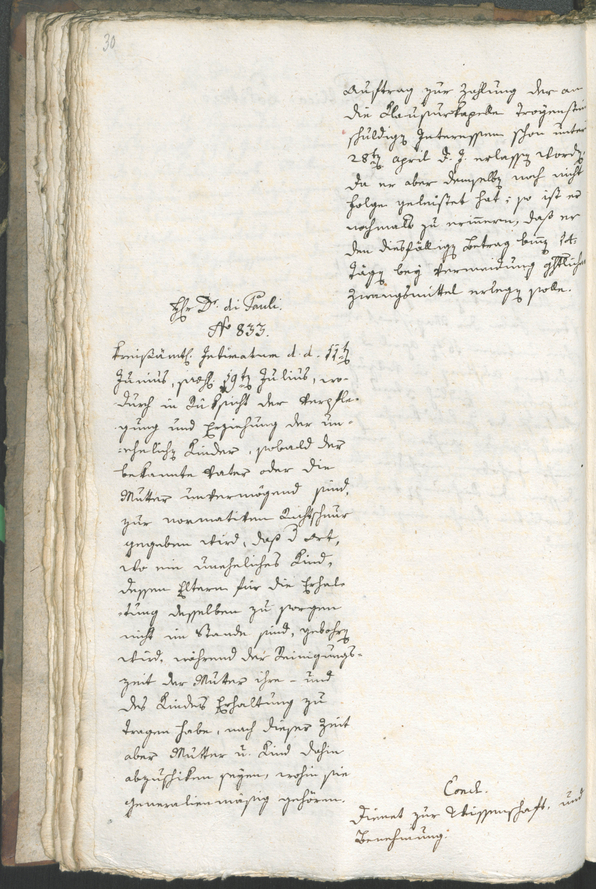 30
Auftrag zur Zahlung der an
die Klausurkapelle Troyenstein
schuldigen Interessen schon unter
28ten April d. J. erlassen worden,
da er aber demselben noch nicht
Folge geleistet hat; so ist er
nochmals zu erinnern, daß er
den diesfälligen Betrag binnen
Tägen bey Vermeidung
Zwangsmittel erlegen solle.
Hr. Dr. di Pauli.
No 833.
Kreisämtl. Intimatum d. d. 11ten
Junius, 19ten Julius, wo-
durch in Rüksicht der Verpfle-
gung und Erziehung der un-
ehelichen Kinder, sobald der
bekannte Vater oder die
Mutter unvermögend sind,
zur normativen Richtschnur
gegeben wird, daß d Ort,
wo ein uneheliches Kind,
dessen Eltern für die Erhal-
tung desselben zu sorgen
nicht im Stande sind, gebohren
wird, während der Reinigungs-
zeit der Mutter ihre- und
des Kindes Erhaltung zu
tragen habe, nach dieser Zeit
aber Mutter u. Kind dahin
abzuschiken seyen, wohin sie
generalienmäsig gehören.
Concl.
Dienet zur Wissenschaft, und
Benehmung.